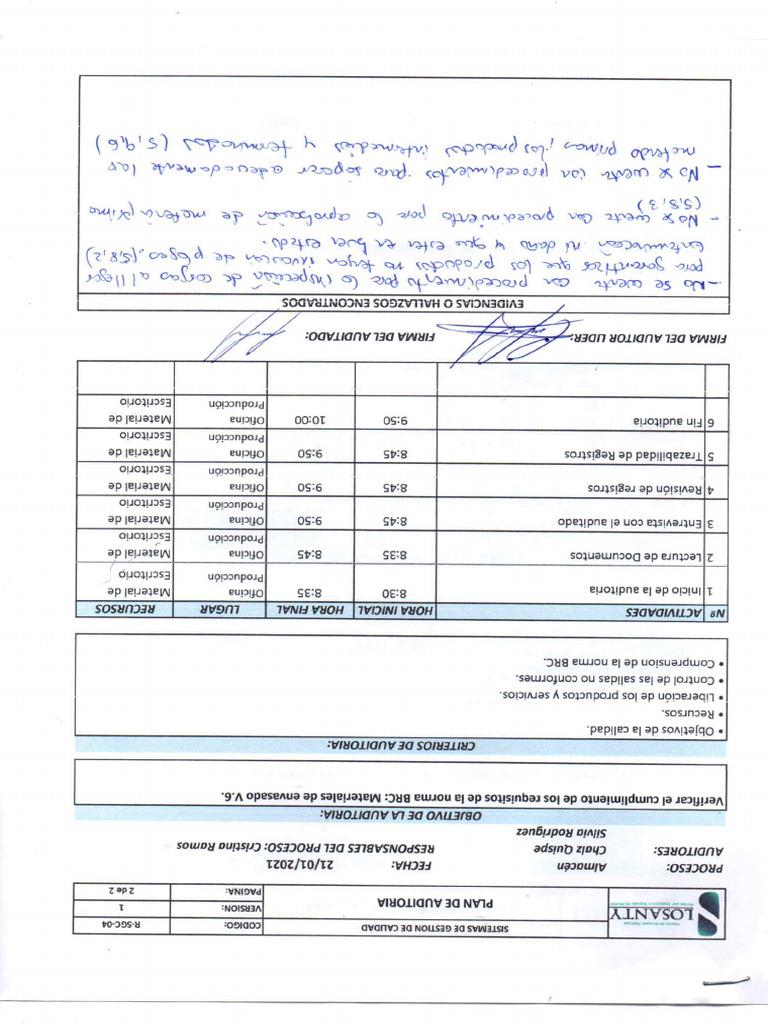 LOSANTY
SISTEMAS DE GESTION DE CALIDAD
CODIGO: R-SGC-04
PLAN DE AUDITORIA
VERSION: 1
PAGINA: 2 de 2
PROCESO: Almacén FECHA: 21/01/2021
AUDITORES: Chalz Quispe RESPONSABLES DEL PROCESO: Cristina Ramos
Silvia Rodriguez
OBJETIVO DE LA AUDITORIA:
Verificar el cumplimiento de los requisitos de la norma BRC: Materiales de envasado V.6.
CRITERIOS DE AUDITORIA:
• Objetivos de la calidad.
• Recursos.
• Liberación de los productos y servicios.
• Control de las salidas no conformes.
• Comprension de la norma BRC.
Nº ACTIVIDADES HORA INICIAL HORA FINAL LUGAR RECURSOS
1 Inicio de la auditoria 8:30 8:35 Oficina Producción Material de Escritorio
2 Lectura de Documentos 8:35 8:45 Oficina Producción Material de Escritorio
3 Entrevista con el auditado 8:45 9:50 Oficina Producción Material de Escritorio
4 Revisión de registros 8:45 9:50 Oficina Producción Material de Escritorio
5 Trazabilidad de Registros 8:45 9:50 Oficina Producción Material de Escritorio
6 Fin auditoria 9:50 10:00 Oficina Producción Material de Escritorio
FIRMA DEL AUDITOR LIDER: FIRMA DEL AUDITADO:
EVIDENCIAS O HALLAZGOS ENCONTRADOS
- No se cuenta con procedimiento para la inspección de cargas al llegar
para garantizar que los productos no tengan invasion de plagas, (5,8,2)
contaminación ni daño y que esten en buen estado.
- No se cuenta con procedimiento para la aprobación de materia prima
(5,8,3)
- No se cuenta con procedimientos para separar adecuadamente las
primas, los productos intermedios y terminados (5,9,6)